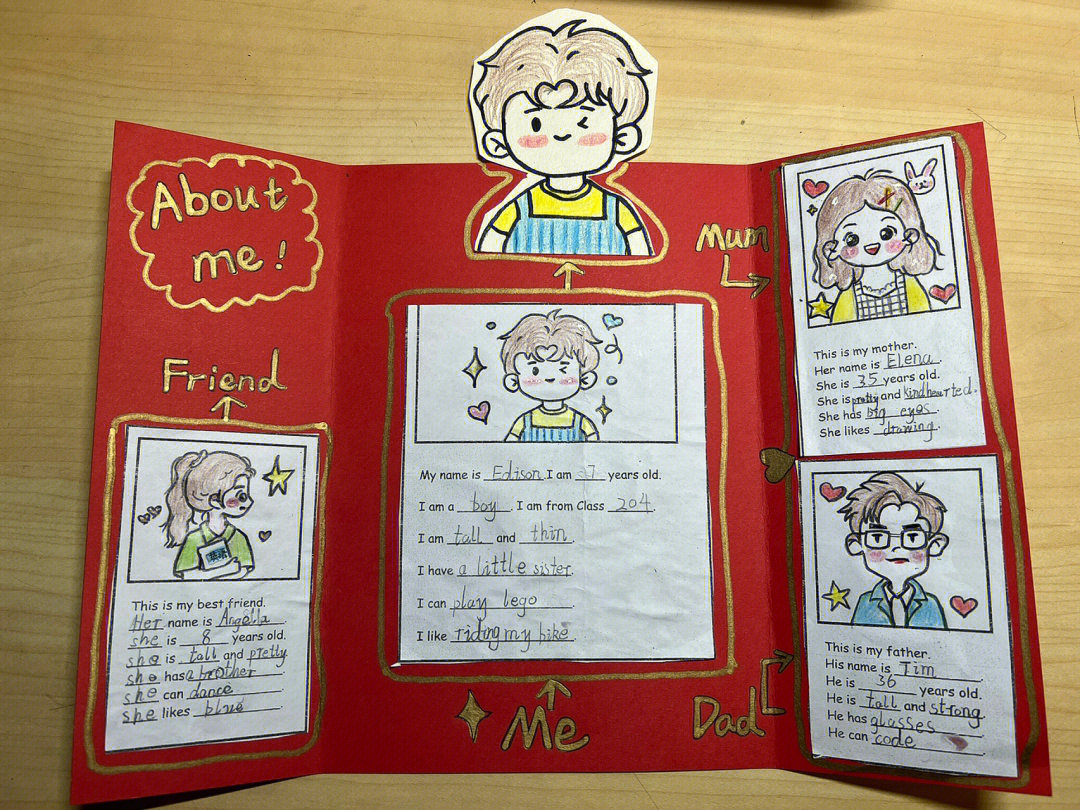 About
me!
Friend
This is my best friend.
Her name is Angella.
she is 8 years old.
she is tall and pretty
she has a brother.
she can dance.
she likes blue.
My name is Edison. I am 7 years old.
I am a boy. I am from Class 204.
I am tall and thin.
I have a little sister.
I can play lego.
I like riding my bike.
Me
Mum
This is my mother.
Her name is Elena.
She is 35 years old.
She is pretty and kindhearted.
She has big eyes.
She likes drawing.
Dad
This is my father.
His name is Tim.
He is 36 years old.
He is tall and strong.
He has glasses.
He can code.